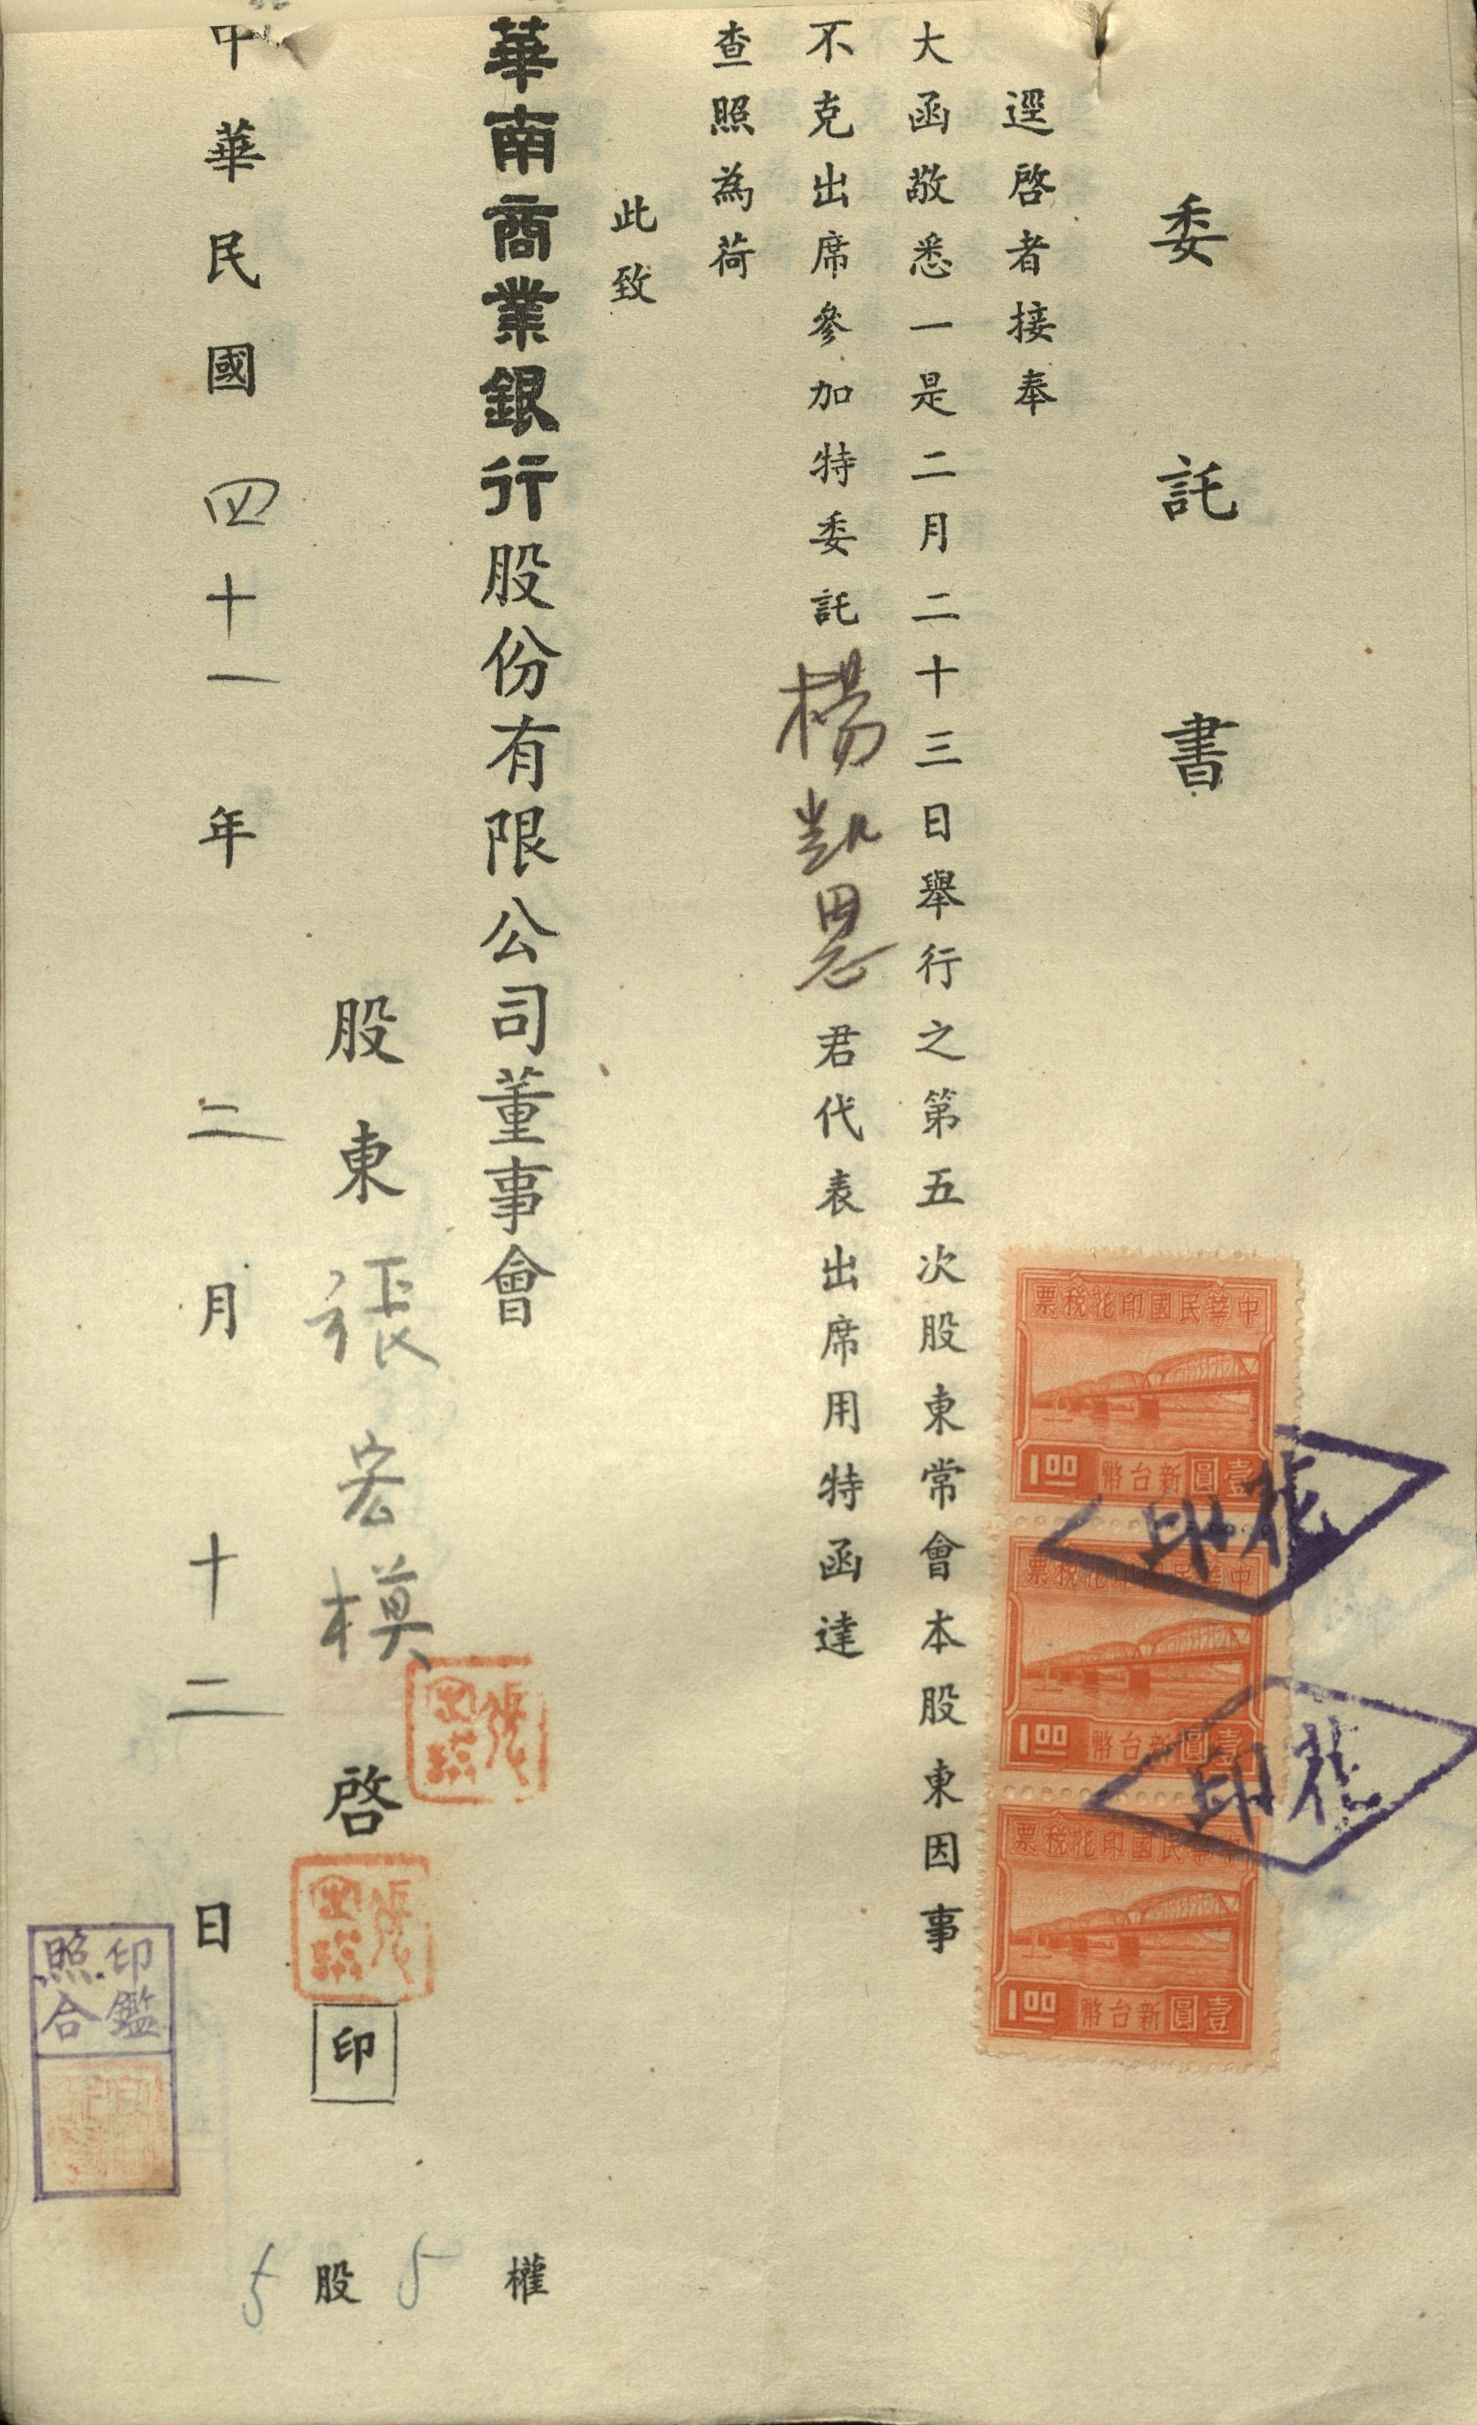 委託書
逕啓者接奉
大函敬悉一是二月二十三日舉行之第五次股東常會本股東因事
不克出席參加特委託楊凱恩君代表出席用特函達
查照為荷
此致
華南商業銀行股份有限公司董事會
股東張宏模啓印
中華民國四十一年二月十二日
5股5權
印鑑
照合
中華民國印花稅票
壹圓新台幣
1.00
中華民國印花稅票
壹圓新台幣
1.00
中華民國印花稅票
壹圓新台幣
1.00
印花
印花